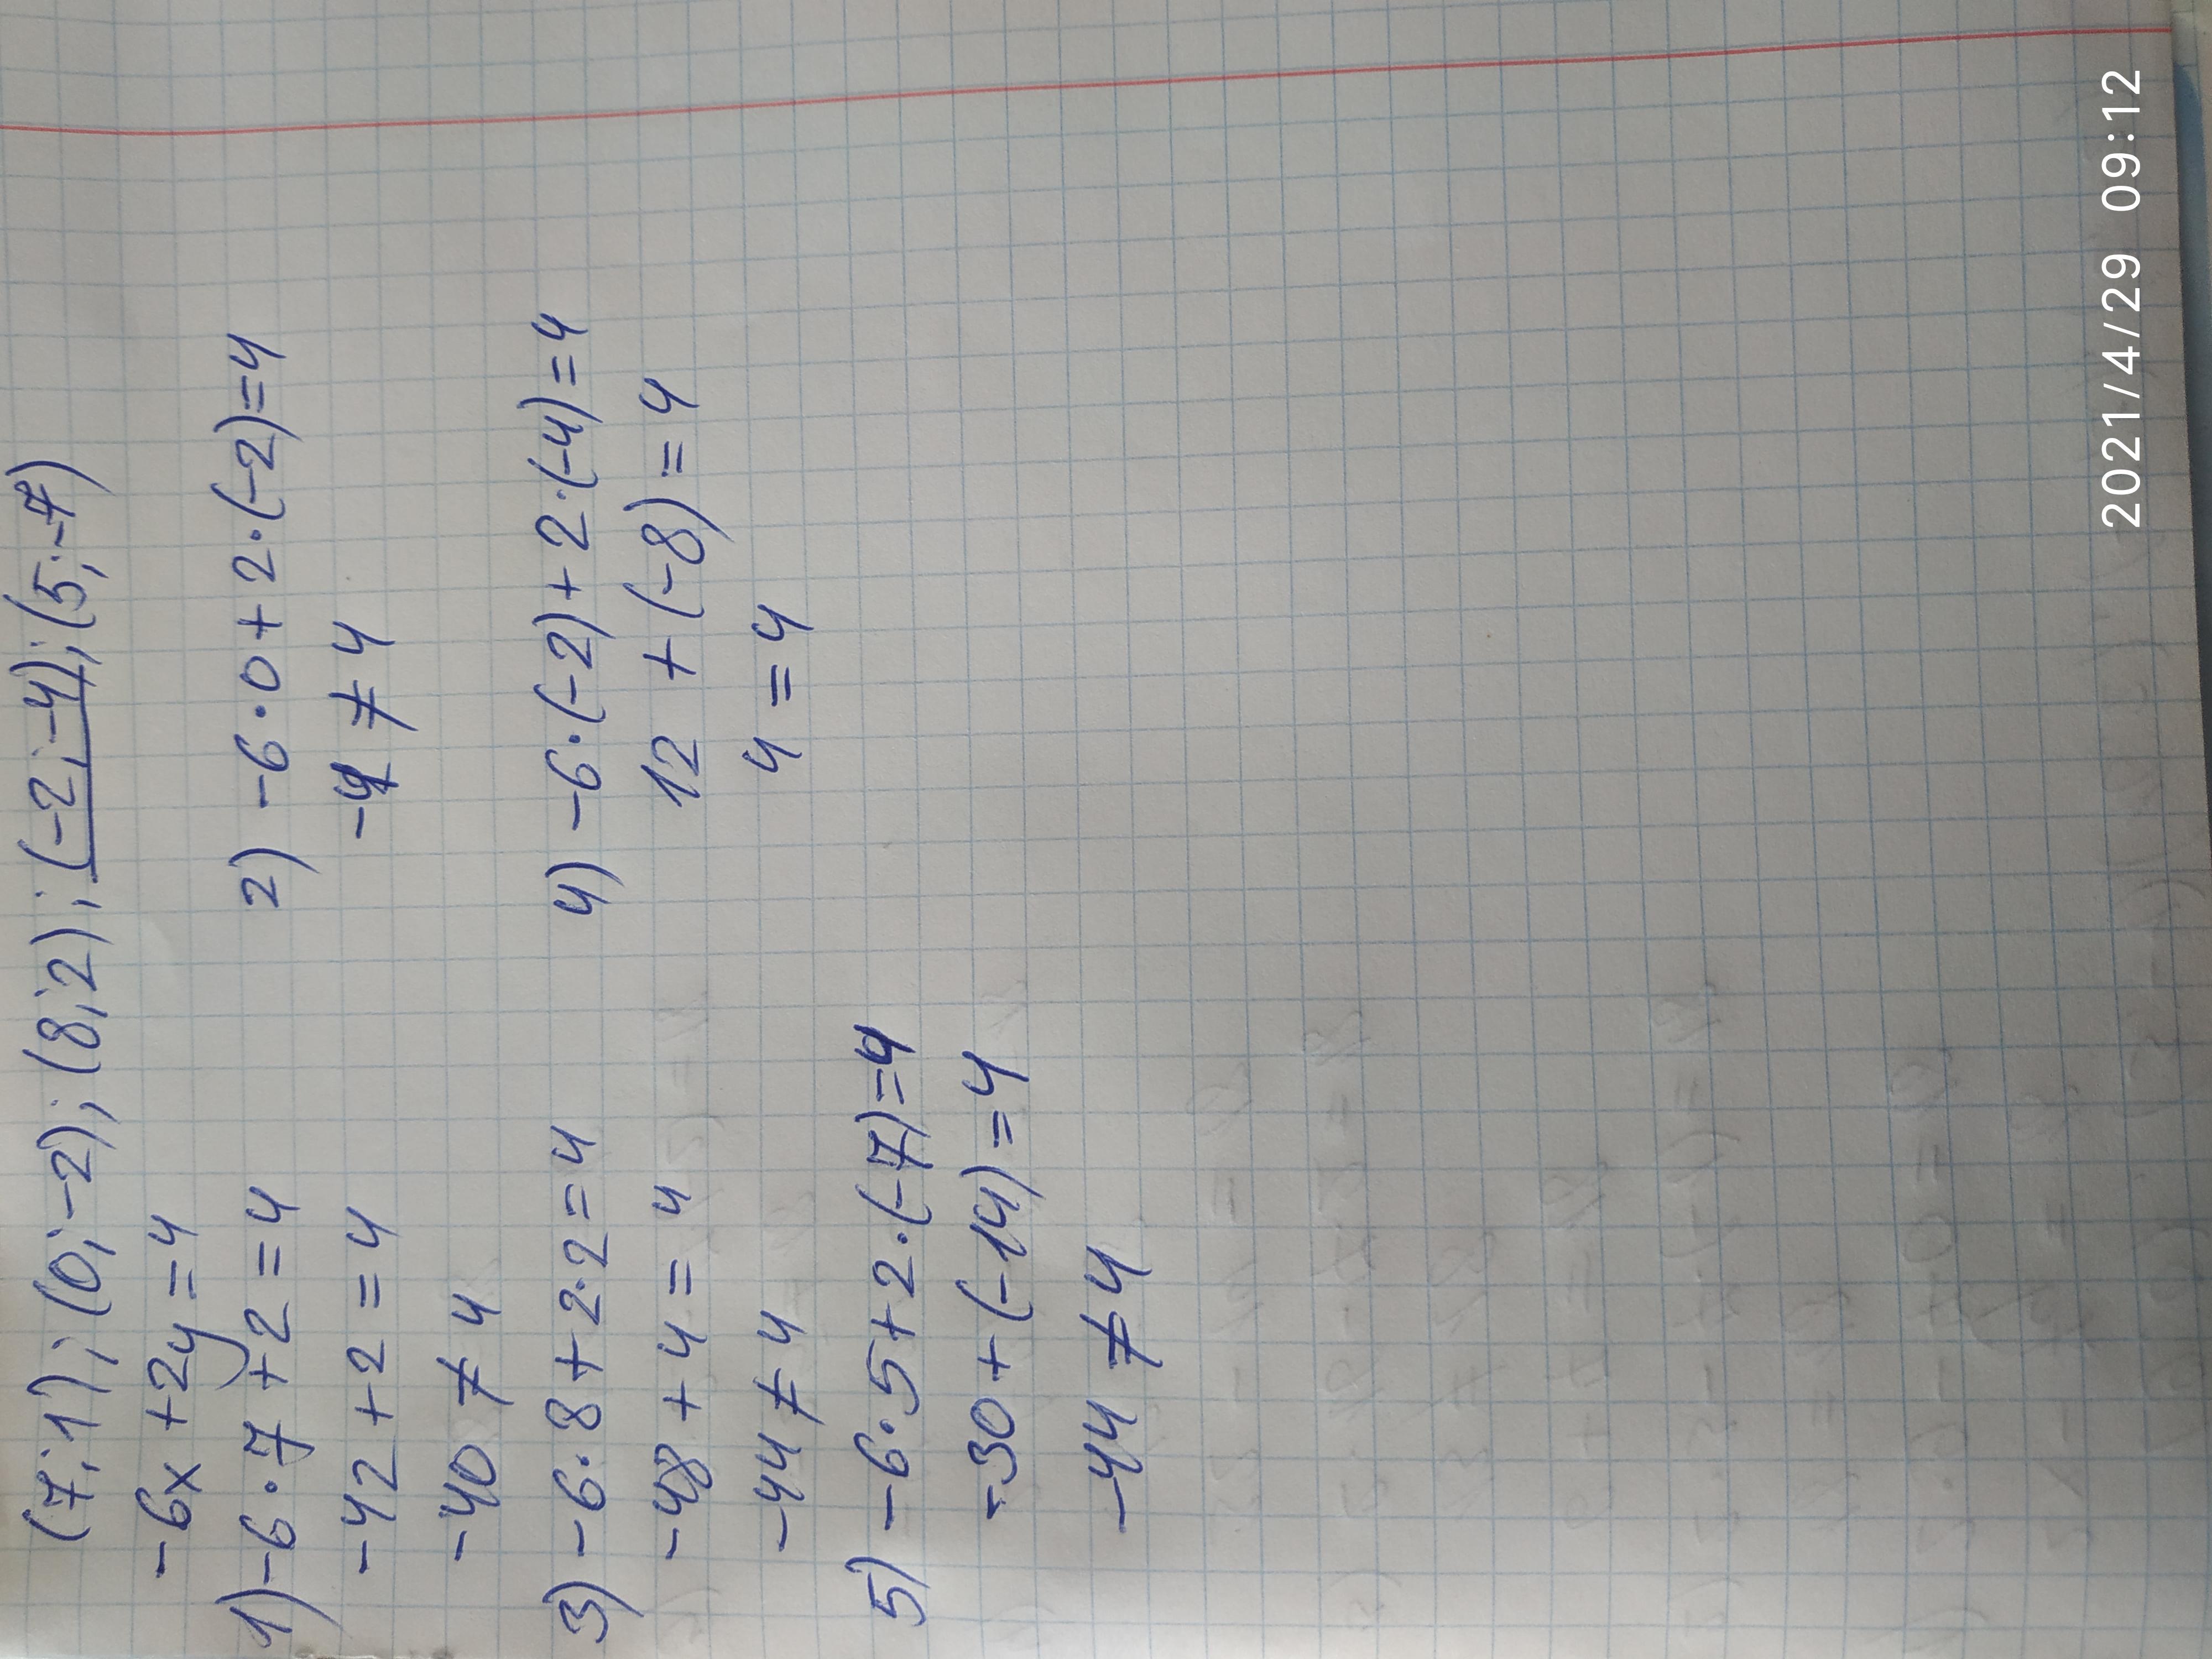 (7;1); (0;-2); (8;2); (-2;-4); (5;-7)
-6x+2y=4
1) -6·7+2=4
-42+2=4
-40≠4
2) -6·0+2·(-2)=4
-4≠4
3) -6·8+2·2=4
-48+4=4
-44≠4
4) -6·(-2)+2·(-4)=4
12+(-8)=4
4=4
5) -6·5+2·(-7)=4
-30+(-14)=4
-44≠4
2021/4/29 09:12